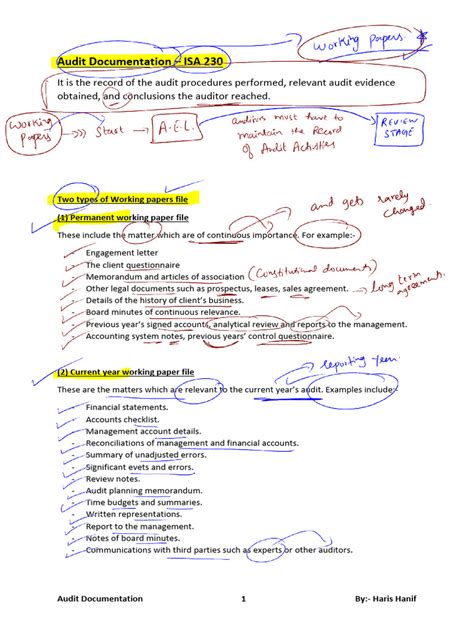 working papers.
Audit Documentation – ISA 230
It is the record of the audit procedures performed, relevant audit evidence
obtained, and conclusions the auditor reached.
working papers →>> Start → A.E.L. auditors must have to maintain the Record of Audit Activities → REVIEW STAGE
Two types of Working papers file
(1) Permanent working paper file
and gets rarely changed.
These include the matter which are of continuous importance. For example:-
- Engagement letter
- The client questionnaire
- Memorandum and articles of association (Constitutional documents)
- Other legal documents such as prospectus, leases, sales agreement. → long term agreements.
- Details of the history of client's business.
- Board minutes of continuous relevance.
- Previous year's signed accounts, analytical review and reports to the management.
- Accounting system notes, previous years' control questionnaire.
reporting year
(2) Current year working paper file
These are the matters which are relevant to the current year's audit. Examples include:-
- Financial statements.
- Accounts checklist.
- Management account details.
- Reconciliations of management and financial accounts.
- Summary of unadjusted errors.
- Significant evets and errors.
- Review notes.
- Audit planning memorandum.
- Time budgets and summaries.
- Written representations.
- Report to the management.
- Notes of board minutes.
- Communications with third parties such as experts or other auditors.
Audit Documentation 1 By:- Haris Hanif